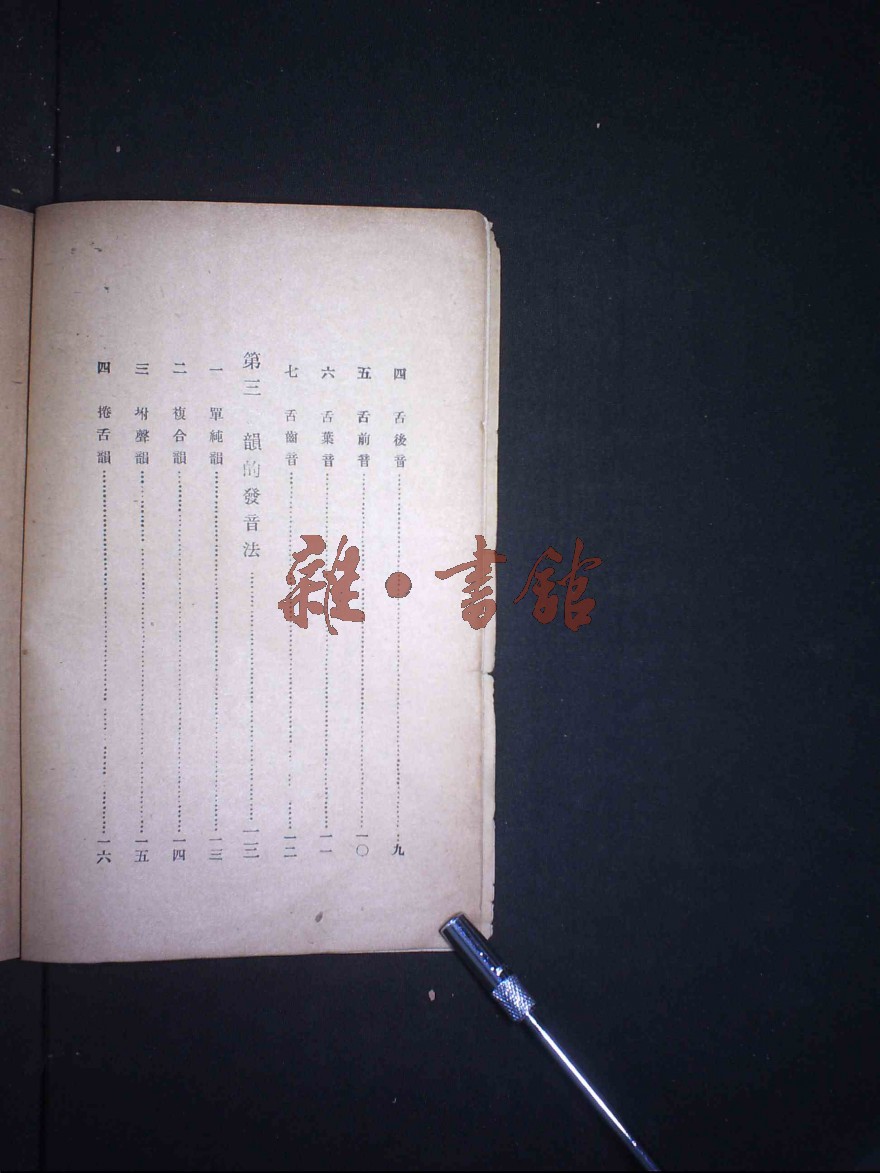 四　舌後音……九
五　舌前音……一〇
六　舌葉音……一一
七　舌齒音……一二
第三　韻的發音法……一三
一　單純韻……一三
二　複合韻……一四
三　坿聲韻……一五
四　捲舌韻……一六
雜·書館